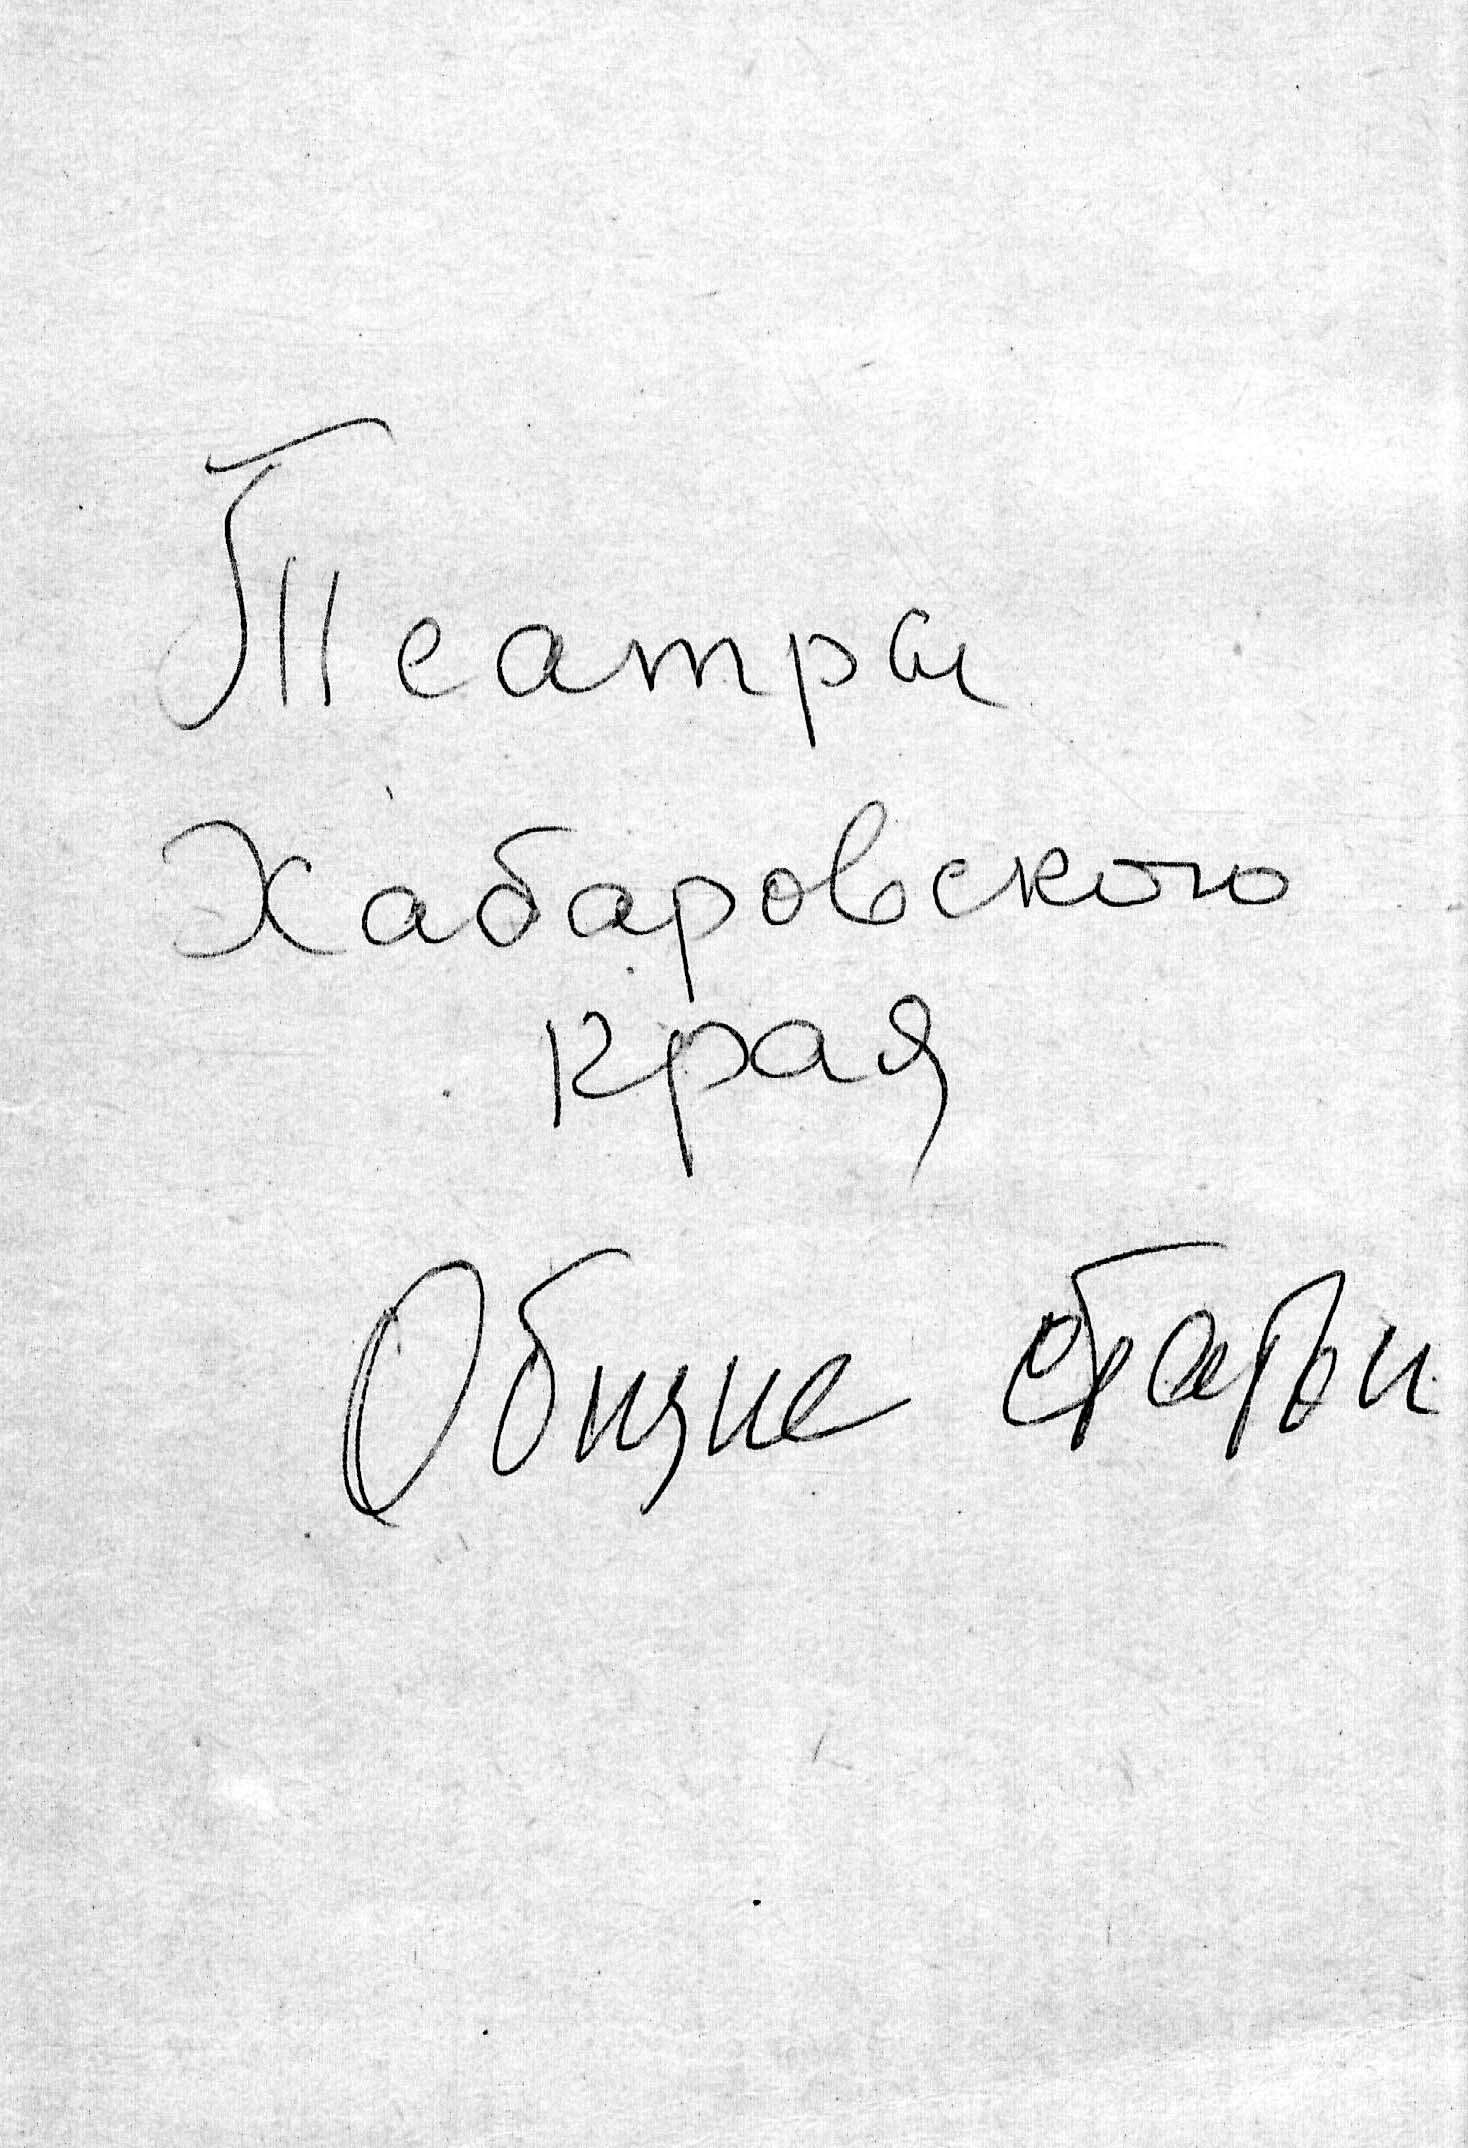 Театры
Хабаровского
края
Общие статьи